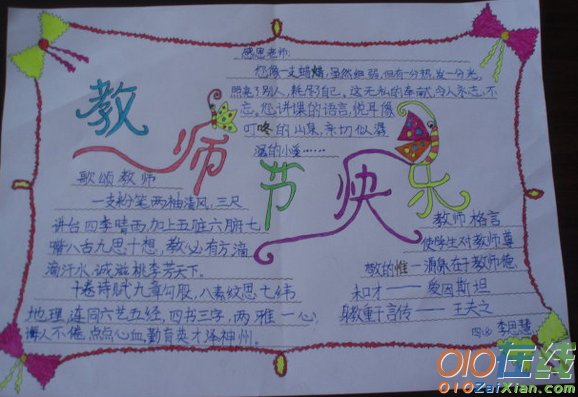 教师节快乐
感恩老师:
您像一支蜡烛,虽然细弱,但有一分热,发一分光,
照亮了别人,耗尽了自己。这无私的奉献,令人永志不
忘。您讲课的语言,悦耳像
叮咚的山泉,亲切似潺
潺的小溪……
歌颂教师
一支粉笔,两袖清风,三尺
讲台四季晴雨,加上五脏六腑七
嘴八舌九思十想,教必有方滴
滴汗水,诚滋桃李芳天下。
十卷诗赋九章勾股,八索文思七纬
地理,连同六艺五经,四书三字,两雅一心,
诲人不倦,点点心血,勤育英才泽神州。
教师格言
使学生对教师尊
敬的惟一源泉在于教师德
和才——爱因斯坦
身教重于言传——王夫之
李思慧
010在线
010ZaiXian.com